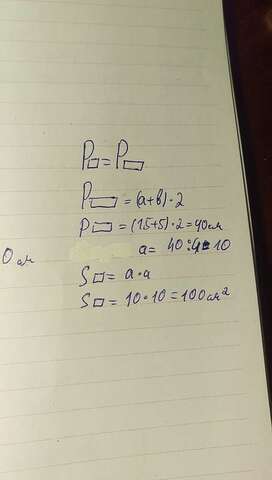 P□=P▭
P▭=(a+b)·2
P▭=(15+5)·2=40см
0 см
a= 40:4=10
S□=a·a
S□=10·10=100см²